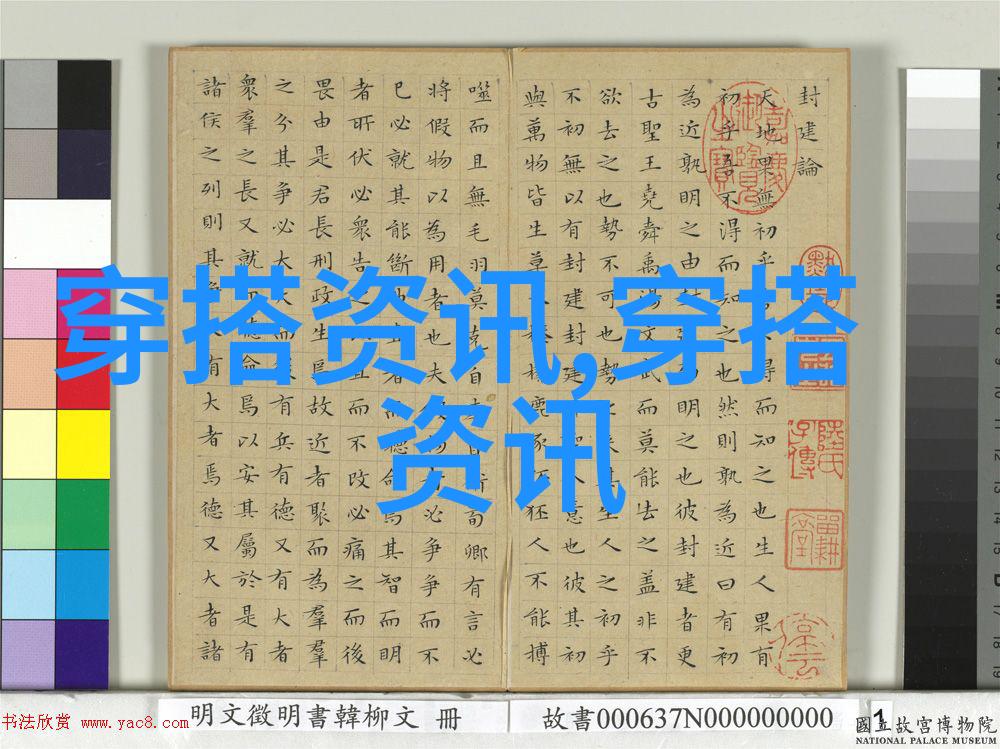 封建論
天地果無初乎吾不得而知之也生人果有
初乎吾不得而知之也然則孰為近曰有初
為近孰明之由封建而明之也彼封建者更
古聖王堯舜禹湯文武而莫能去之蓋非不
欲去之也勢不可也勢之來其生人之初乎
不初無以有封建封建非聖人意也彼其初
與萬物皆生草木榛榛鹿豕狉狉人不能搏
噬而且無毛羽莫克自奉自衛荀卿有言必
將假物以為用者也夫假物者必爭爭而不
已必就其能斷曲直者而聽命焉其智而明
者所伏必衆告之以直而不改必痛之而後
畏由是君長刑政生焉故近者聚而為羣
之分其爭必大大而後有兵有德又有大者
衆羣之長又就而聽命焉以安其屬於是有
諸侯之列則其爭又有大者焉德又大者諸
穿搭资讯,穿搭
资讯
明文徵明書韓柳文 冊
故書000637N000000000
1
書法欣赏 www.yac8.com
國立故宮博物院
NATIONAL PALACE MUSEUM